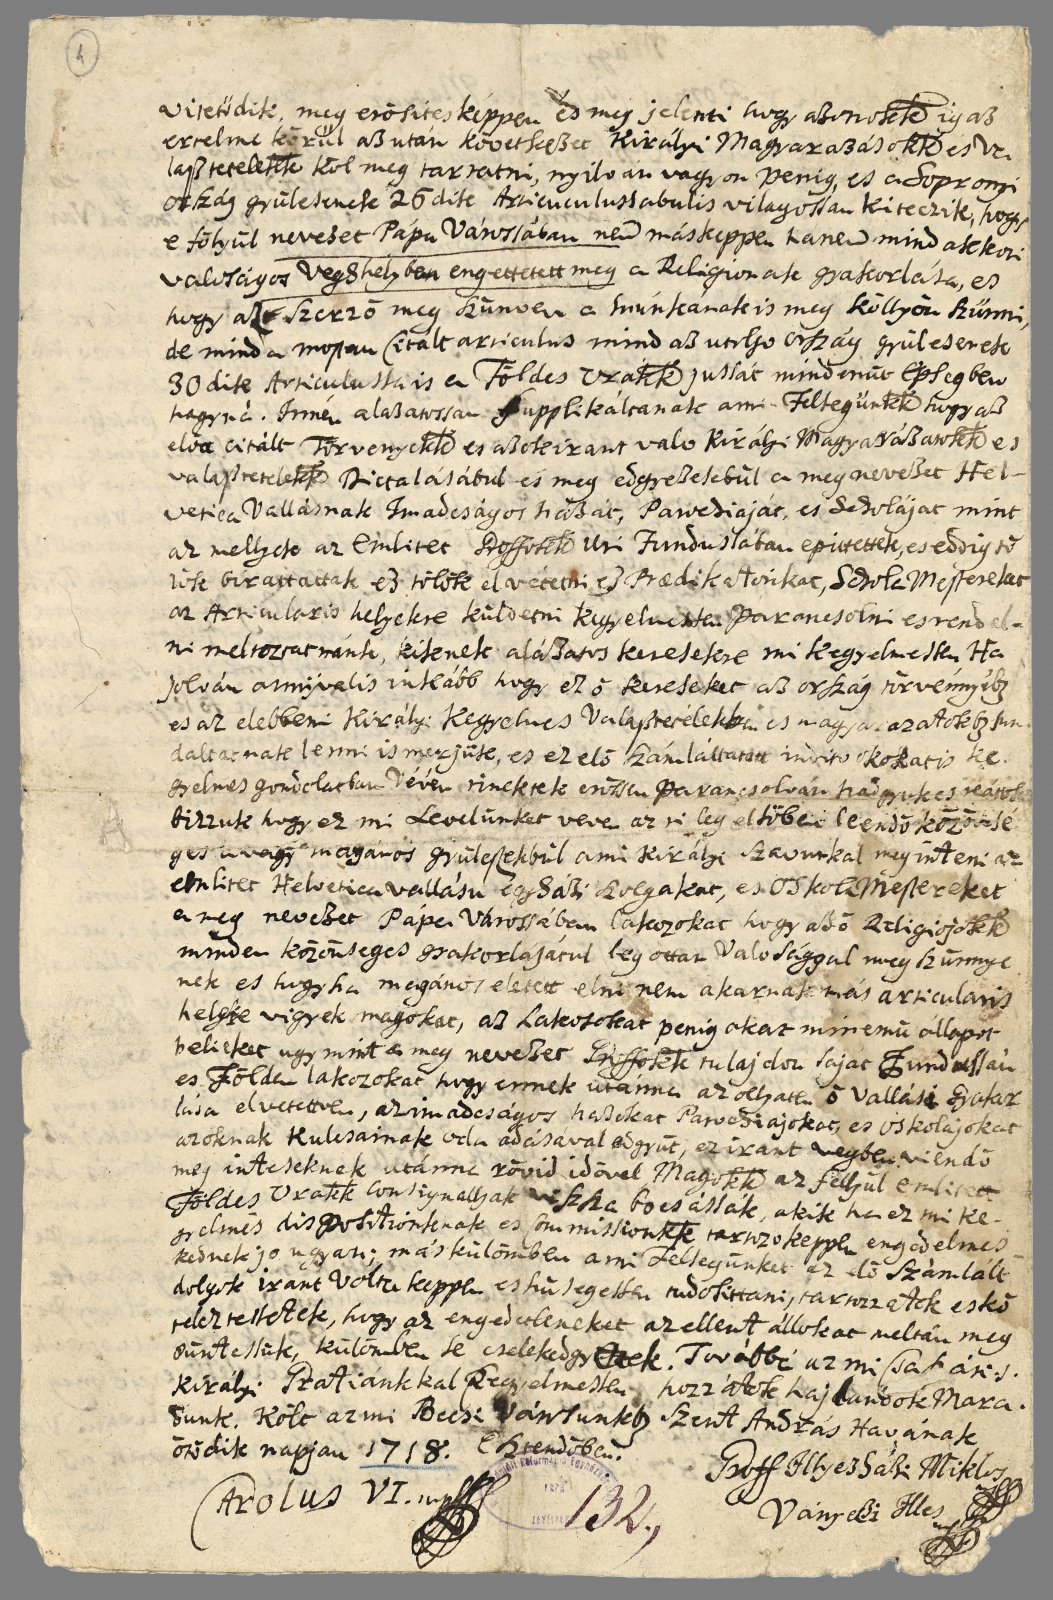 4
vitetődik, meg erősitesképpen és meg jelenti hogy azonokkk igaz
ertelme körül az után következet Királyi Magyarazásokkk és va
lasztetelekkk köl meg tartatni, nyilván vagyon penig, es a Soproni
ország gyülesenek 26dik Articulussabulis vilagossan kiteczik, hogy
e földyül nevezet Pápa Várossában nem másképpen hanem mind akkori
valosagos Vegezhelyben engettetett meg a Religionak gyakorlása, es
hogy az szerző meg szünven a munkanakis meg köllyön szünni,
de mind a mostan citált articulus mind az utolso ország gyülesenek
30dik Articulussais a Földes Urakkk jussát mindenüt épsegben
hagyná. Innén alazatossan supplikáltanak ami Felsegünkkk hogy az
elöa citált Törvenyekkk es azok iránt valo Királyi Magyarázatokkk es
valasztetelekkk Dictalásábul és meg edgyezesebül a meg nevezet Hel-
vetica Vallásnak Imadságos házát, Parochiáját, es Scholáját mint
az mellyek az Emlitet Groffokkk Uri Fundussában epittettek, es eddig tő
lök birattattak ez tölök elvetetni ez Praedikátorikat, Schola Mestereket
az Articularis helyekre küldetni kegyelmessen Parancsolni es rendel-
ni meltoztatnánk, kiknek alázatos keresekre mi kegyelmessen Ha
jolván annyivalis inkább hogy ez ő kereseket az ország törvénnyébz
es az elebbeni Királyi Kegyelmes Valasztetélekbűl es magyarazatokbz fun
daltatnak lenni ismerjük, es ez elő számláltatott inditó okokatis ke-
gyelmes gondolatban Vévén tinektek erössen Parancsolván hadgyuk es reátok
bizzuk hogy ez mi Levelünket veven az ti leg elsőben leendő közönse
ges avagy magános gyülestekbül ami Királyi Szavunkal meginteni az
emlitet Helvetica vallásu Egyházi Szolgakat, es Oskola Mestereket
a meg nevezet Pápa Várossában lakozokat hogy az ő Religiojokkk
minden közönseges gyakorlásátul legottan Valosággal meg szünnye
nek es hogy ha magános életett elni nem akarnak más articularis
helyre vigyék magokat, az Lakosokat penig akar minemü allapot
belieket ugymint a meg nevezet Groffokkk tulajdon saját Fundussán
es Földen lakozokat hogy ennek utánna az olyatten ő Vallási gyakor
lása elvetettven, az imadságos hazokat Parochiájokat, es Oskolájokat
azoknak kulcsainak oda adásával edgyüt, ez iránt vegben viendő
meg inteseknek utánna rövid idővel Magokkk az felljül emlitett
Földes Urakkk consignallyak visza bocsássák, akik ha ez mi ke-
gyelmes dispositionknak, es Commissionkkk tartozoképpen engedelmes
kednek jo ugyan; máskülömben ami Felsegünket ez elő számlált
dolgok iránt Voltaképpen es hüsegessen tudosittani, tartozzatok es kö
teleztessetek, hogy az engedetleneket az ellent állokat meltán meg
büntessük, külömben se cselekedgyetek. Továbbá az mi Csaszári s.
Királyi Gratiánkkal Kegyelmessen hozzátok hajlandok Mara-
dunk. Költ az mi Becsi Várossunkbz Szent András Havának
ötödik napjan 1718. Esztendőben.
Groff Illyesházi Miklos
CArolus VI. mpr
132.
Ványoßi Illes